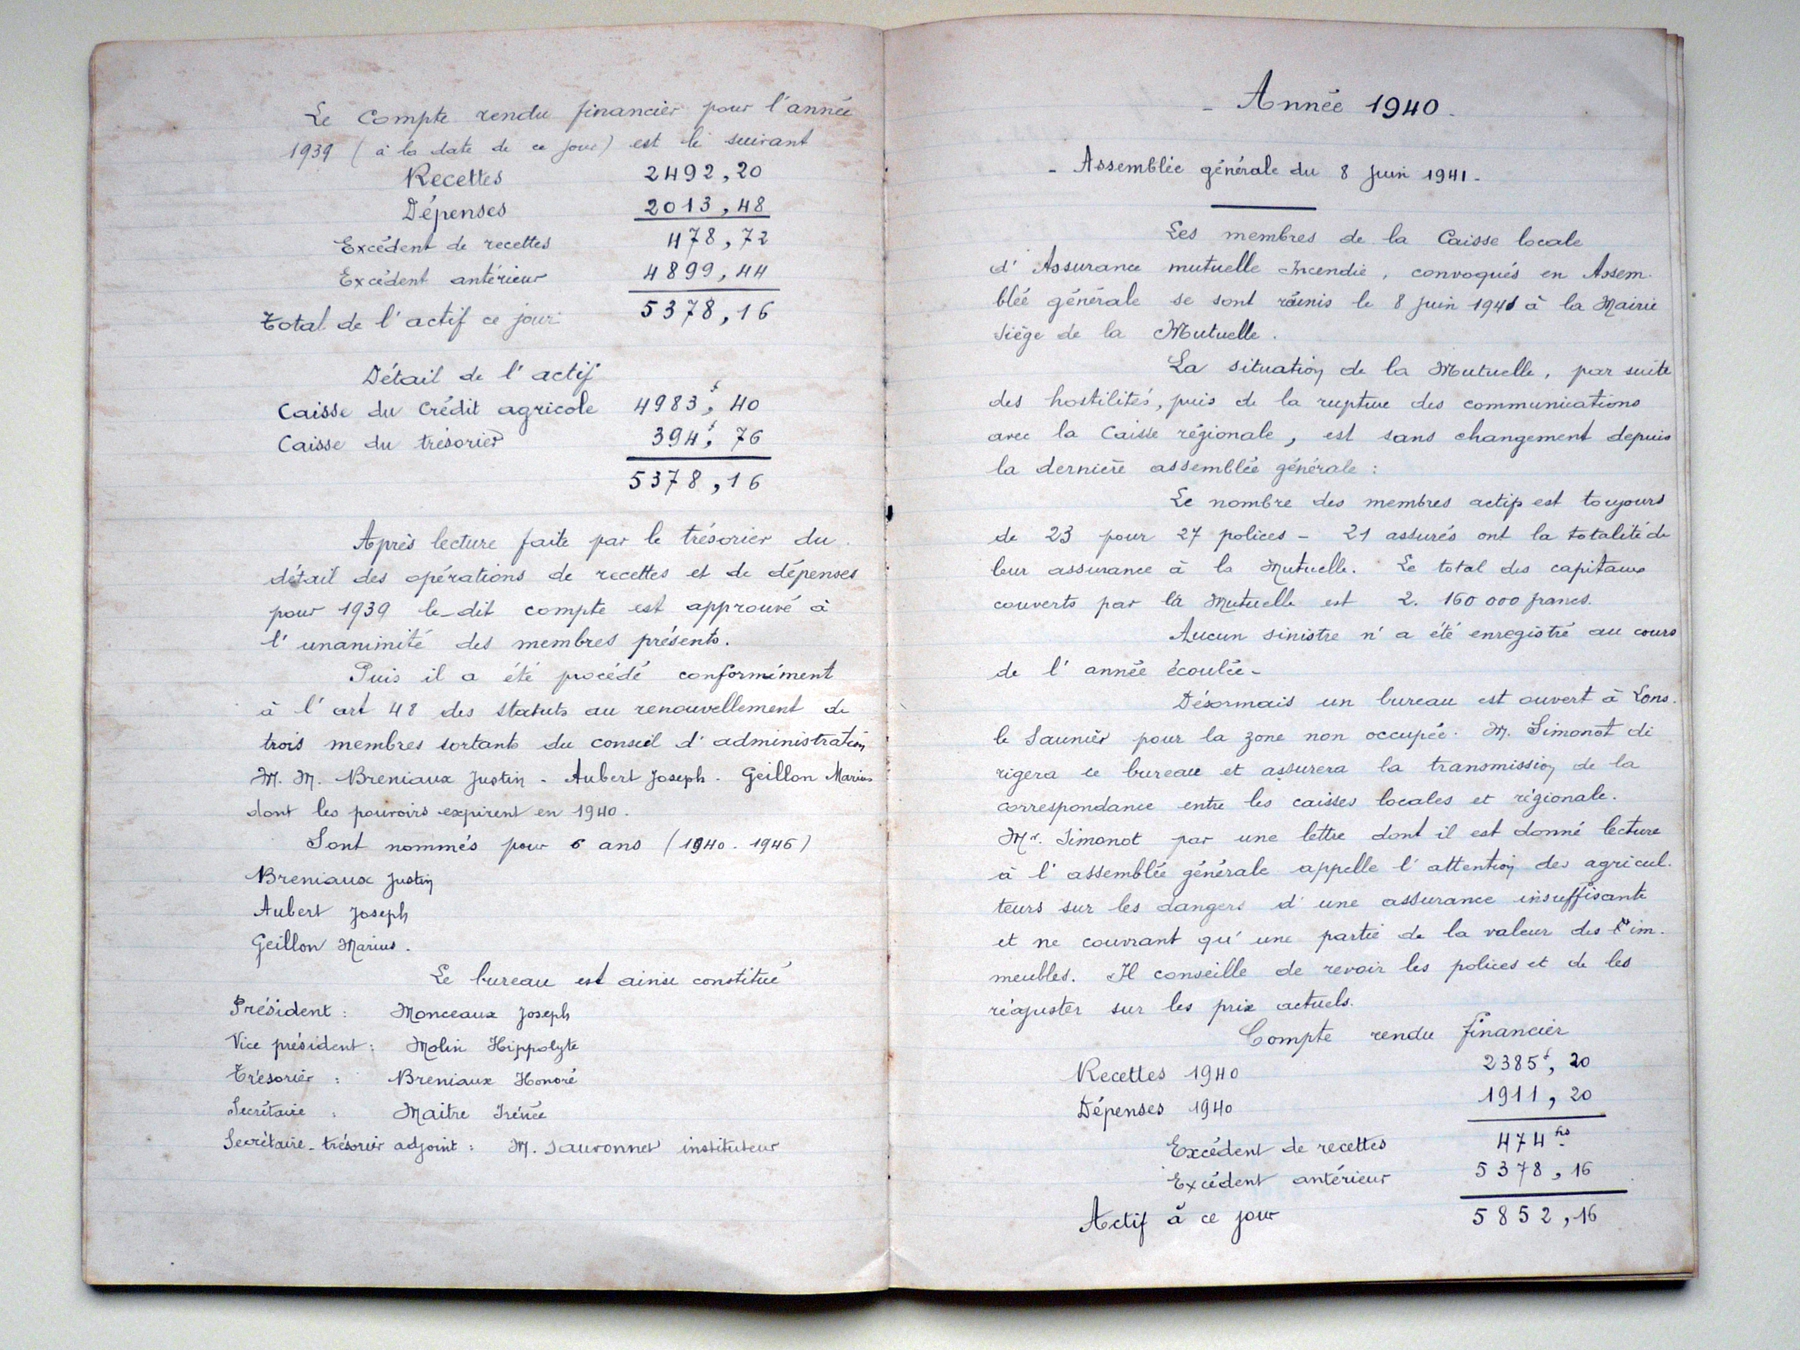 Le Compte rendu financier pour l'année
1939 (à la date de ce jour) est le suivant
Recettes 2492,20
Dépenses 2013,48
Excédent de recettes 478,72
Excédent antérieur 4899,44
Total de l'actif ce jour 5378,16
Détail de l'actif
Caisse du Crédit agricole 4983f,40
Caisse du trésorier 394f,76
5378,16
Après lecture faite par le trésorier du
détail des opérations de recettes et de dépenses
pour 1939 le dit compte est approuvé à
l'unanimité des membres présents.
Puis il a été procédé conformément
à l'art 48 des statuts au renouvellement de
trois membres sortants du conseil d'administration
M. M. Breniaux Justin - Aubert Joseph - Geillon Marius
dont les pouvoirs expirent en 1940.
Sont nommés pour 6 ans (1940-1946)
Breniaux Justin
Aubert Joseph
Geillon Marius.
Le bureau est ainsi constitué
Président : Monceaux Joseph
Vice président : Molin Hippolyte
Trésorier : Breniaux Honoré
Secrétaire : Maitre Irénée
Secrétaire-trésorier adjoint : M. Sauvonnet instituteur
- Année 1940.
- Assemblée générale du 8 Juin 1941 -
Les membres de la Caisse locale
d'Assurance mutuelle Incendie, convoqués en Assem-
blée générale se sont réunis le 8 juin 1941 à la Mairie
Siège de la Mutuelle.
La situation de la Mutuelle, par suite
des hostilités, puis de la rupture des communications
avec la Caisse régionale, est sans changement depuis
la dernière assemblée générale :
Le nombre des membres actifs est toujours
de 23 pour 27 polices - 21 assurés ont la totalité de
leur assurance à la Mutuelle. Le total des capitaux
couverts par la Mutuelle est 2.160 000 francs.
Aucun sinistre n'a été enregistré au cours
de l'année écoulée -
Désormais un bureau est ouvert à Lons.
le Saunier pour la zone non occupée. M. Simonot di
rigera ce bureau et assurera la transmission de la
correspondance entre les caisses locales et régionale.
Mr. Simonot par une lettre dont il est donné lecture
à l'assemblée générale appelle l'attention des agricul-
teurs sur les dangers d'une assurance insuffisante
et ne couvrant qu'une partie de la valeur des im-
meubles. Il conseille de revoir les polices et de les
réajuster sur les prix actuels.
Compte rendu financier
Recettes 1940 2385f,20
Dépenses 1940 1911,20
Excédent de recettes 474 frs
Excédent antérieur 5378,16
Actif à ce jour 5852,16